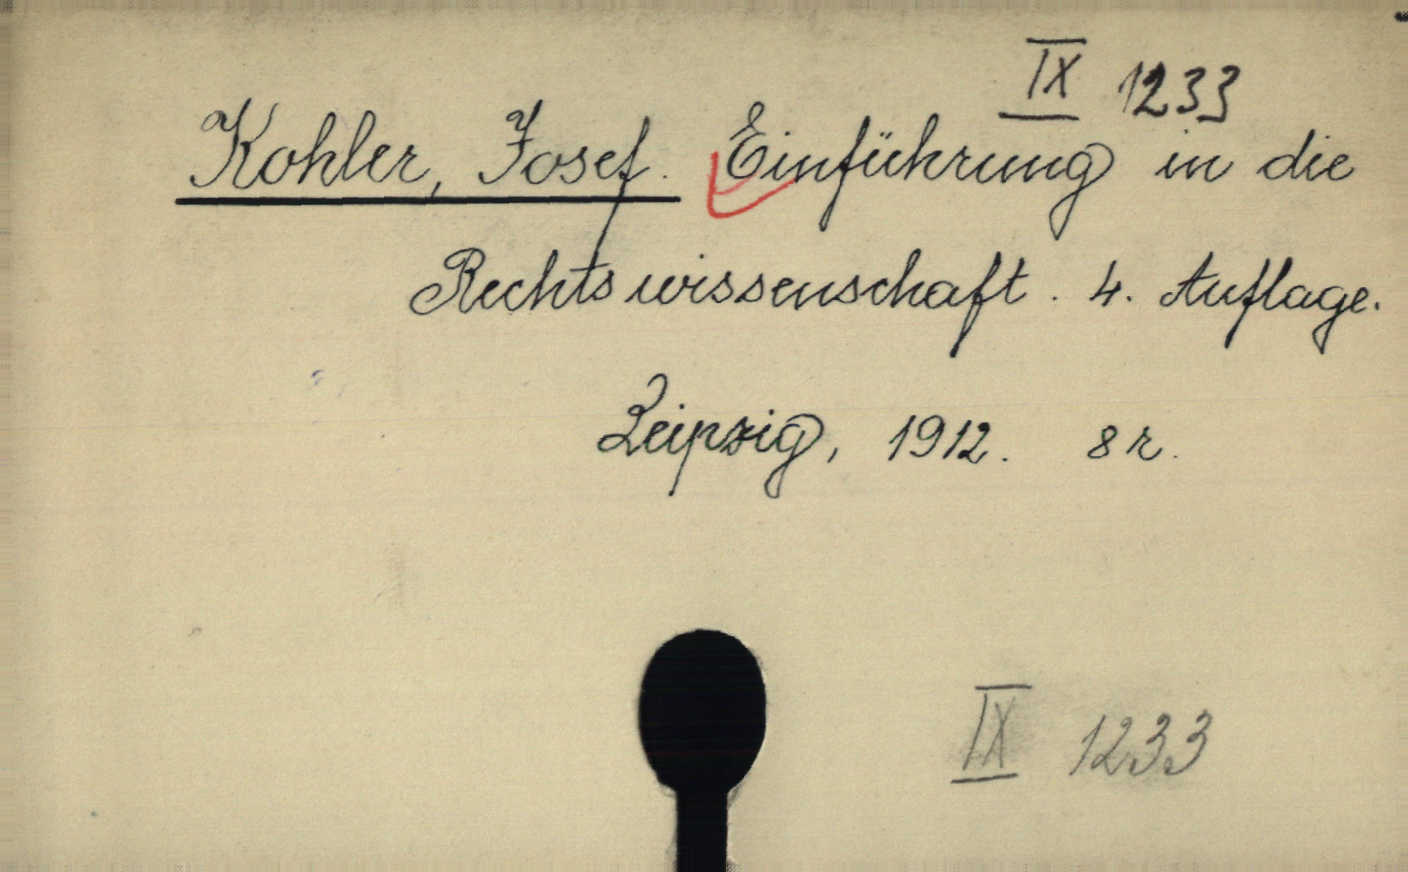 IX 1233
Kohler, Josef. Einführung in die
Rechtswissenschaft. 4. Auflage.
Leipzig, 1912. 8 r.
IX 1233